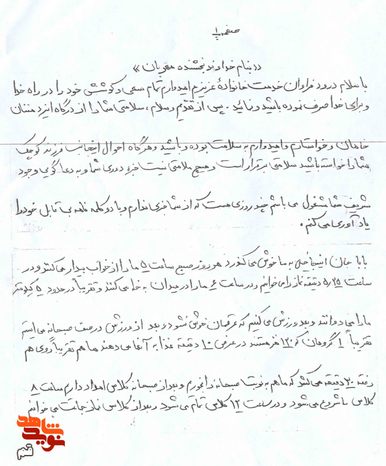 صفحه ۱
«(بنام خداوند بخشنده مهربان)»
با سلام و درود فراوان خدمت خانوادهٔ عزیزم امیدوارم تمام سعی و کوشش خود را در راه خدا
و برای خدا صرف نموده باشید و نمائید. پس از تقدیم و سلام، سلامتی شما را از درگاه ایزد منان
خواهان و خواستارم و امیدوارم به سلامت بوده و باشید و هرگاه احوال اینجانب فرزند کوچک
شما را خواسته باشید سلامتی برقرار است و هیچ ملالتی نیست غیر از دوری شما و به دعا گوئی وجود
شریف شما مشغول می باشم چند روزی هست که از شما خبری ندارم و با دو کلمه نامه ی قابل خود را
یاد آوری می کنم.
بابا جان اینجا خیلی به ما خوش می گذرد هر روز صبح ساعت ۵ ما را از خواب بیدار می کنند و در
ساعت ۵/۲۵ دقیقه نماز را می خوانیم و در ساعت ۶ ما را در میدان به خط می کنند و تقریباً در حدود ۵ کیلومتر
ما را می دوانند و بعد ورزش می کنیم که عرقمان خوش نشود و بعد از ورزش در صف صبحانه می ایستیم
تقریباً ۱ گروهان که ۱۲۰ نفر هستند در عرض ۱۰ دقیقه غذا به آنها می دهند ما هم تقریباً روی هم
رفته ۲۰ دقیقه می کشد که ما هم به نوبت صبحانه را بخوریم و بعد از صبحانه کلاس امداد داریم ساعت ۸
کلاس ما شروع می شود و در ساعت ۱۲ کلاس تمام می شود و بعد از کلاس نماز جماعت می خوانیم
نوید شاهد
قم